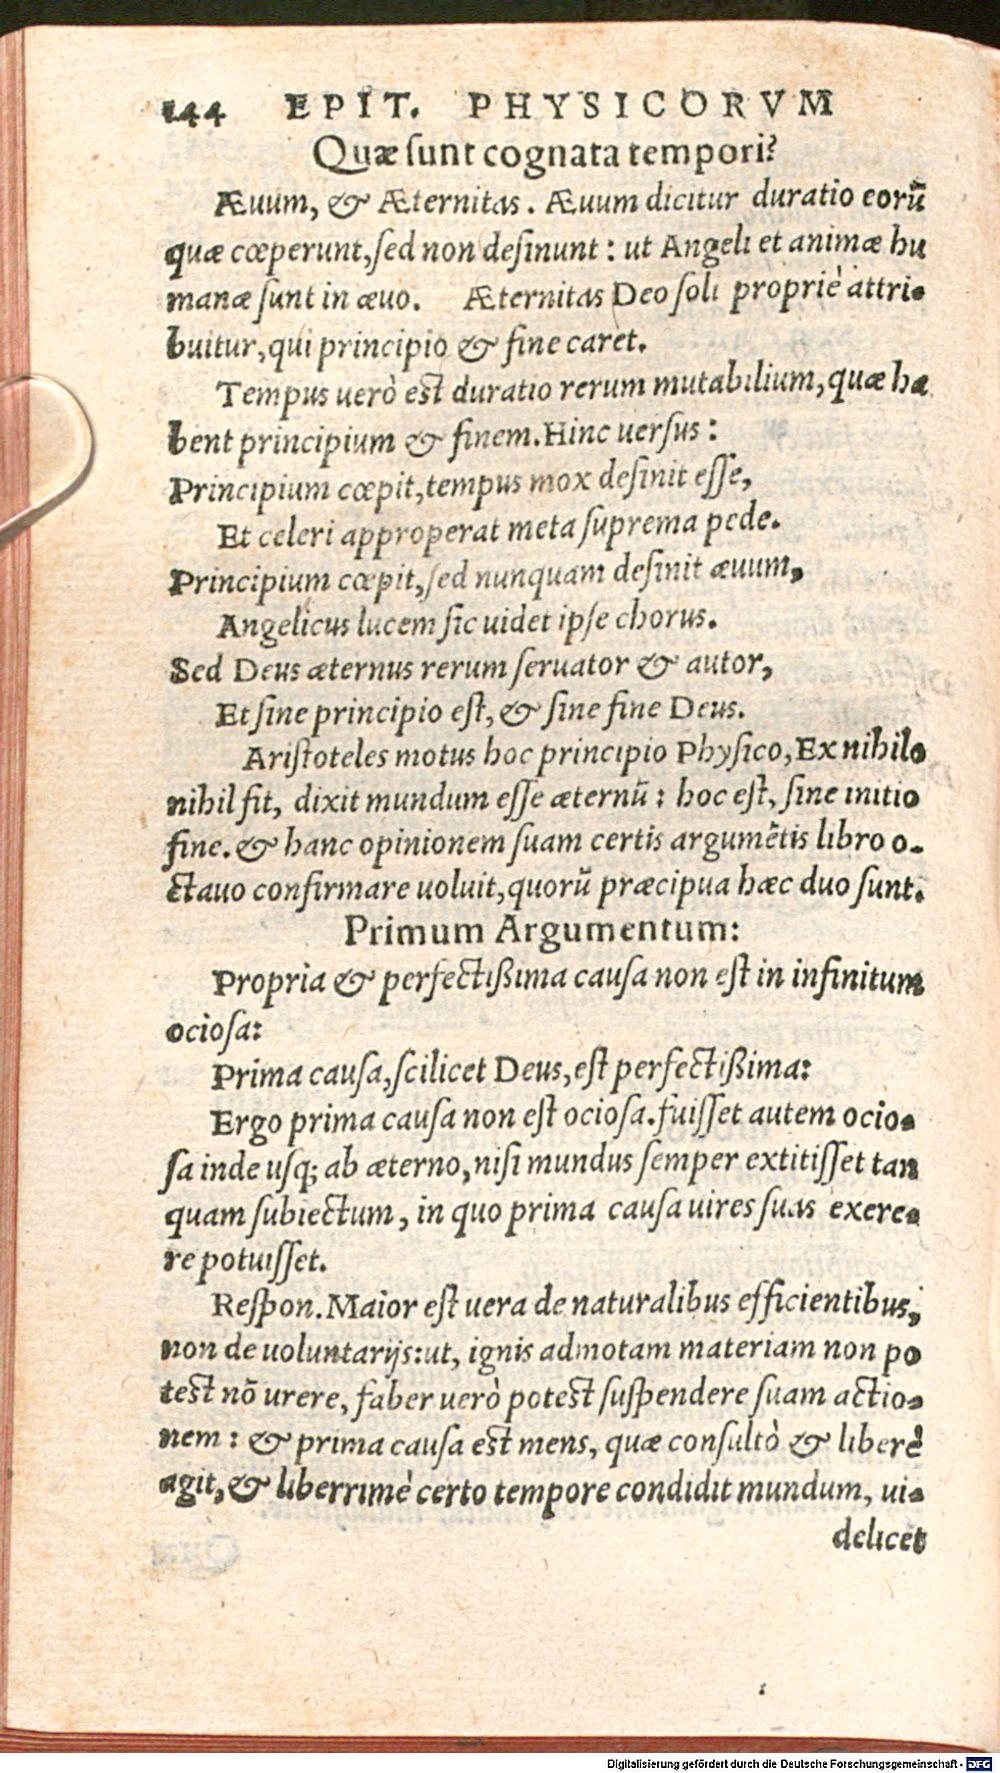 144 EPIT. PHYSICORVM
Quæ sunt cognata tempori?
Æuum, & Æternitas. Æuum dicitur duratio eorũ
quæ cœperunt, sed non desinunt: ut Angeli et animæ hu
manæ sunt in æuo. Æternitas Deo soli propriè attri-
buitur, qui principio & fine caret.
Tempus uerò est duratio rerum mutabilium, quæ ha
bent principium & finem. Hinc uersus:
Principium cœpit, tempus mox desinit esse,
Et celeri approperat meta suprema pede.
Principium cœpit, sed nunquam desinit æuum,
Angelicus lucem sic uidet ipse chorus.
Sed Deus æternus rerum seruator & autor,
Et sine principio est, & sine fine Deus.
Aristoteles motus hoc principio Physico, Ex nihilo
nihil fit, dixit mundum esse æternũ: hoc est, sine initio
fine. & hanc opinionem suam certis argumẽtis libro o-
ctauo confirmare uoluit, quorũ præcipua hæc duo sunt.
Primum Argumentum:
Propria & perfectißima causa non est in infinitum
ociosa:
Prima causa, scilicet Deus, est perfectißima:
Ergo prima causa non est ociosa. fuisset autem ocio-
sa inde usq; ab æterno, nisi mundus semper extitisset tan
quam subiectum, in quo prima causa uires suas exere-
re potuisset.
Respon. Maior est uera de naturalibus efficientibus,
non de uoluntarijs: ut, ignis admotam materiam non po
test nõ urere, faber uerò potest suspendere suam actio-
nem: & prima causa est mens, quæ consultò & liberè
agit, & liberrimè certo tempore condidit mundum, ui-
delicet
Digitalisierung gefördert durch die Deutsche Forschungsgemeinschaft - DFG